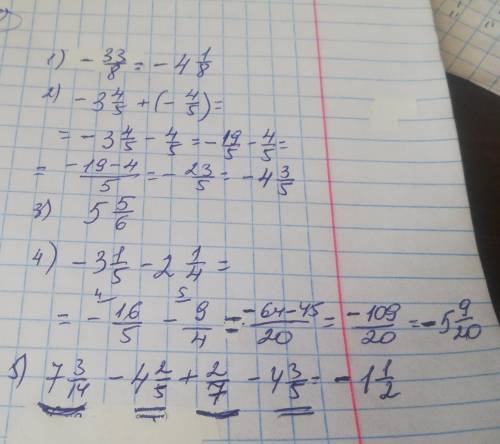 1) - 33/8 = - 4 1/8
2) - 3 4/5 + (- 4/5) =
= - 3 4/5 - 4/5 = - 19/5 - 4/5 =
= -19-4/5 = - 23/5 = - 4 3/5
3) 5 5/6
4) - 3 1/5 - 2 1/4 =
= - 4 16/5 - 5 9/4 = -64-45/20 = -109/20 = -5 9/20
5) 7 3/14 - 4 2/5 + 2/7 - 4 3/5 = - 1 1/2